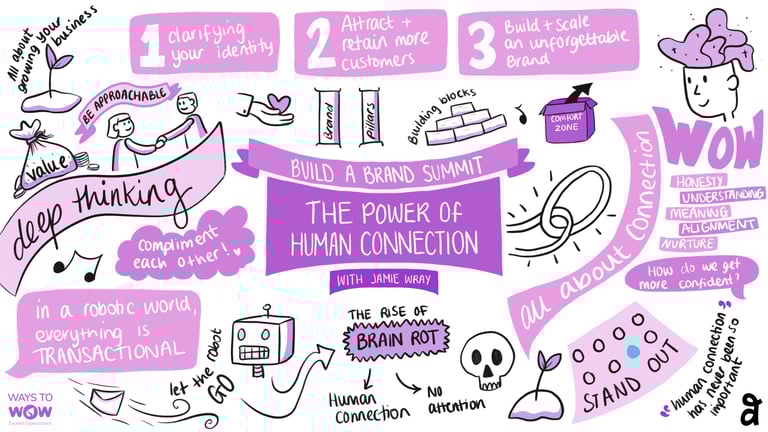 All about
growing your
business
1 clarifying
your identity
2 Attract +
retain more
customers
3 Build + scale
an unforgettable
Brand
BE APPROACHABLE
Brand
pillars
Building blocks
COMFORT
ZONE
value
deep thinking
compliment
each other!
BUILD A BRAND SUMMIT
THE POWER OF
HUMAN CONNECTION
WITH JAMIE WRAY
all about connection
WOW
HONESTY
UNDERSTANDING
MEANING
ALIGNMENT
NURTURE
How do we get
more confident?
in a robotic world,
everything is
TRANSACTIONAL
let the robot
GO
THE RISE OF
BRAIN ROT
Human
connection
No
attention
STAND OUT
"human connection
has never been so
important"
WAYS TO
WOW
Exceed Expectations
a